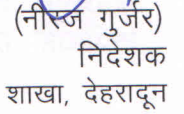 (नीरज गुर्जर)
निदेशक
शाखा, देहरादून